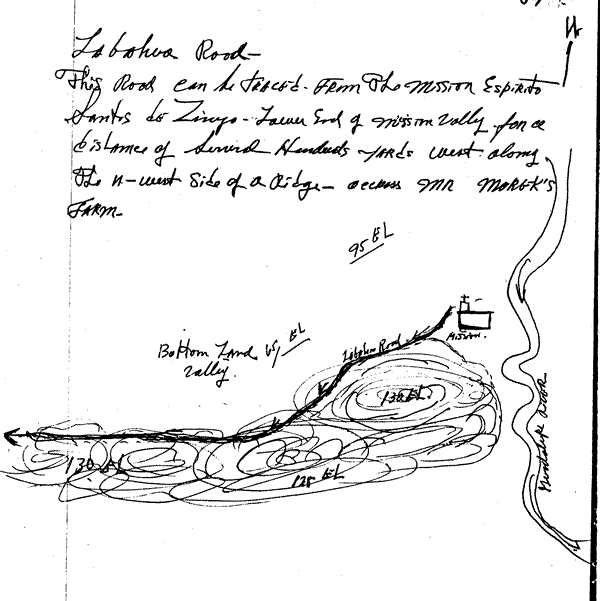 Labahia Road-
This Road can be traced. From The mission Espirito
Santos de Zinyo - Lower End of mission Vally. for a
distance of Several Hundreds yards west along
The n-west Side of a Ridge - across MR MAREK"S
FARM-
N
95 EL
Bottom Land 85/ EL
Vally.
Labahia Road
MISSION.
136 EL
130 EL
128 EL
River